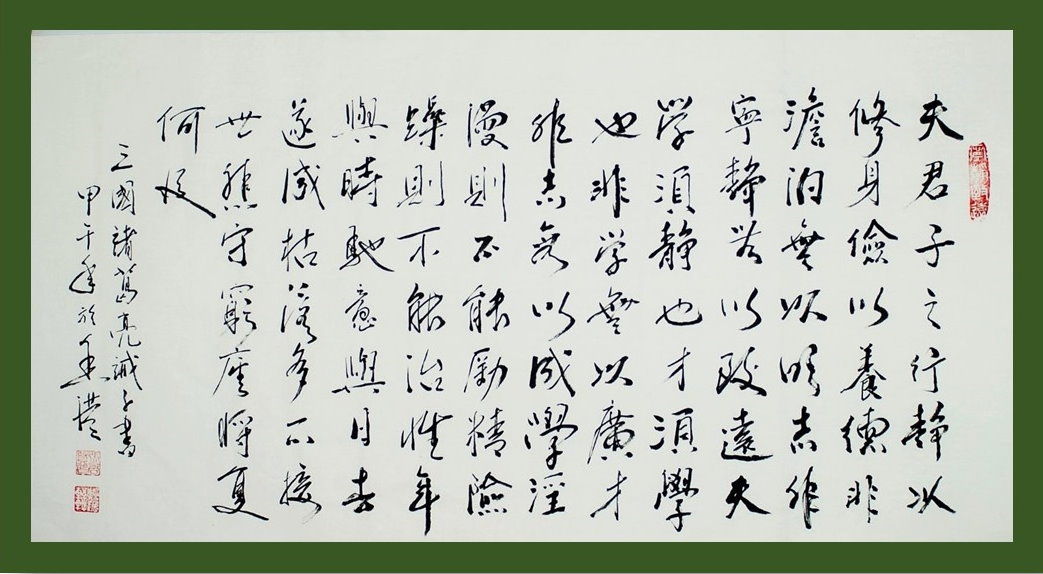 夫君子之行静以
修身儉以養德非
澹泊無以明志非
寧静無以致遠夫
学須静也才須學
也非学無以廣才
非志無以成學淫
漫則不能勵精險
躁則不能治性年
與時馳意與日去
遂成枯落多不接
世悲守窮廬將复
何及
三國諸葛亮誡子書
甲午年於香港